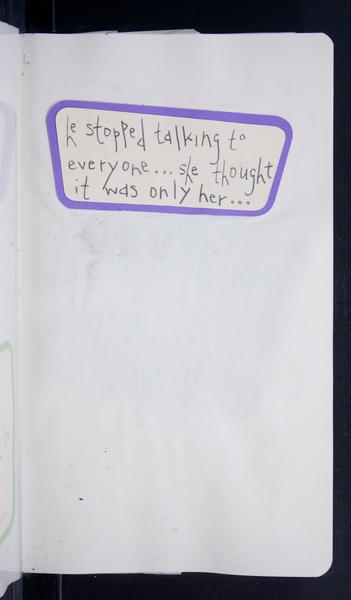 he stopped talking to
everyone... she thought
it was only her...